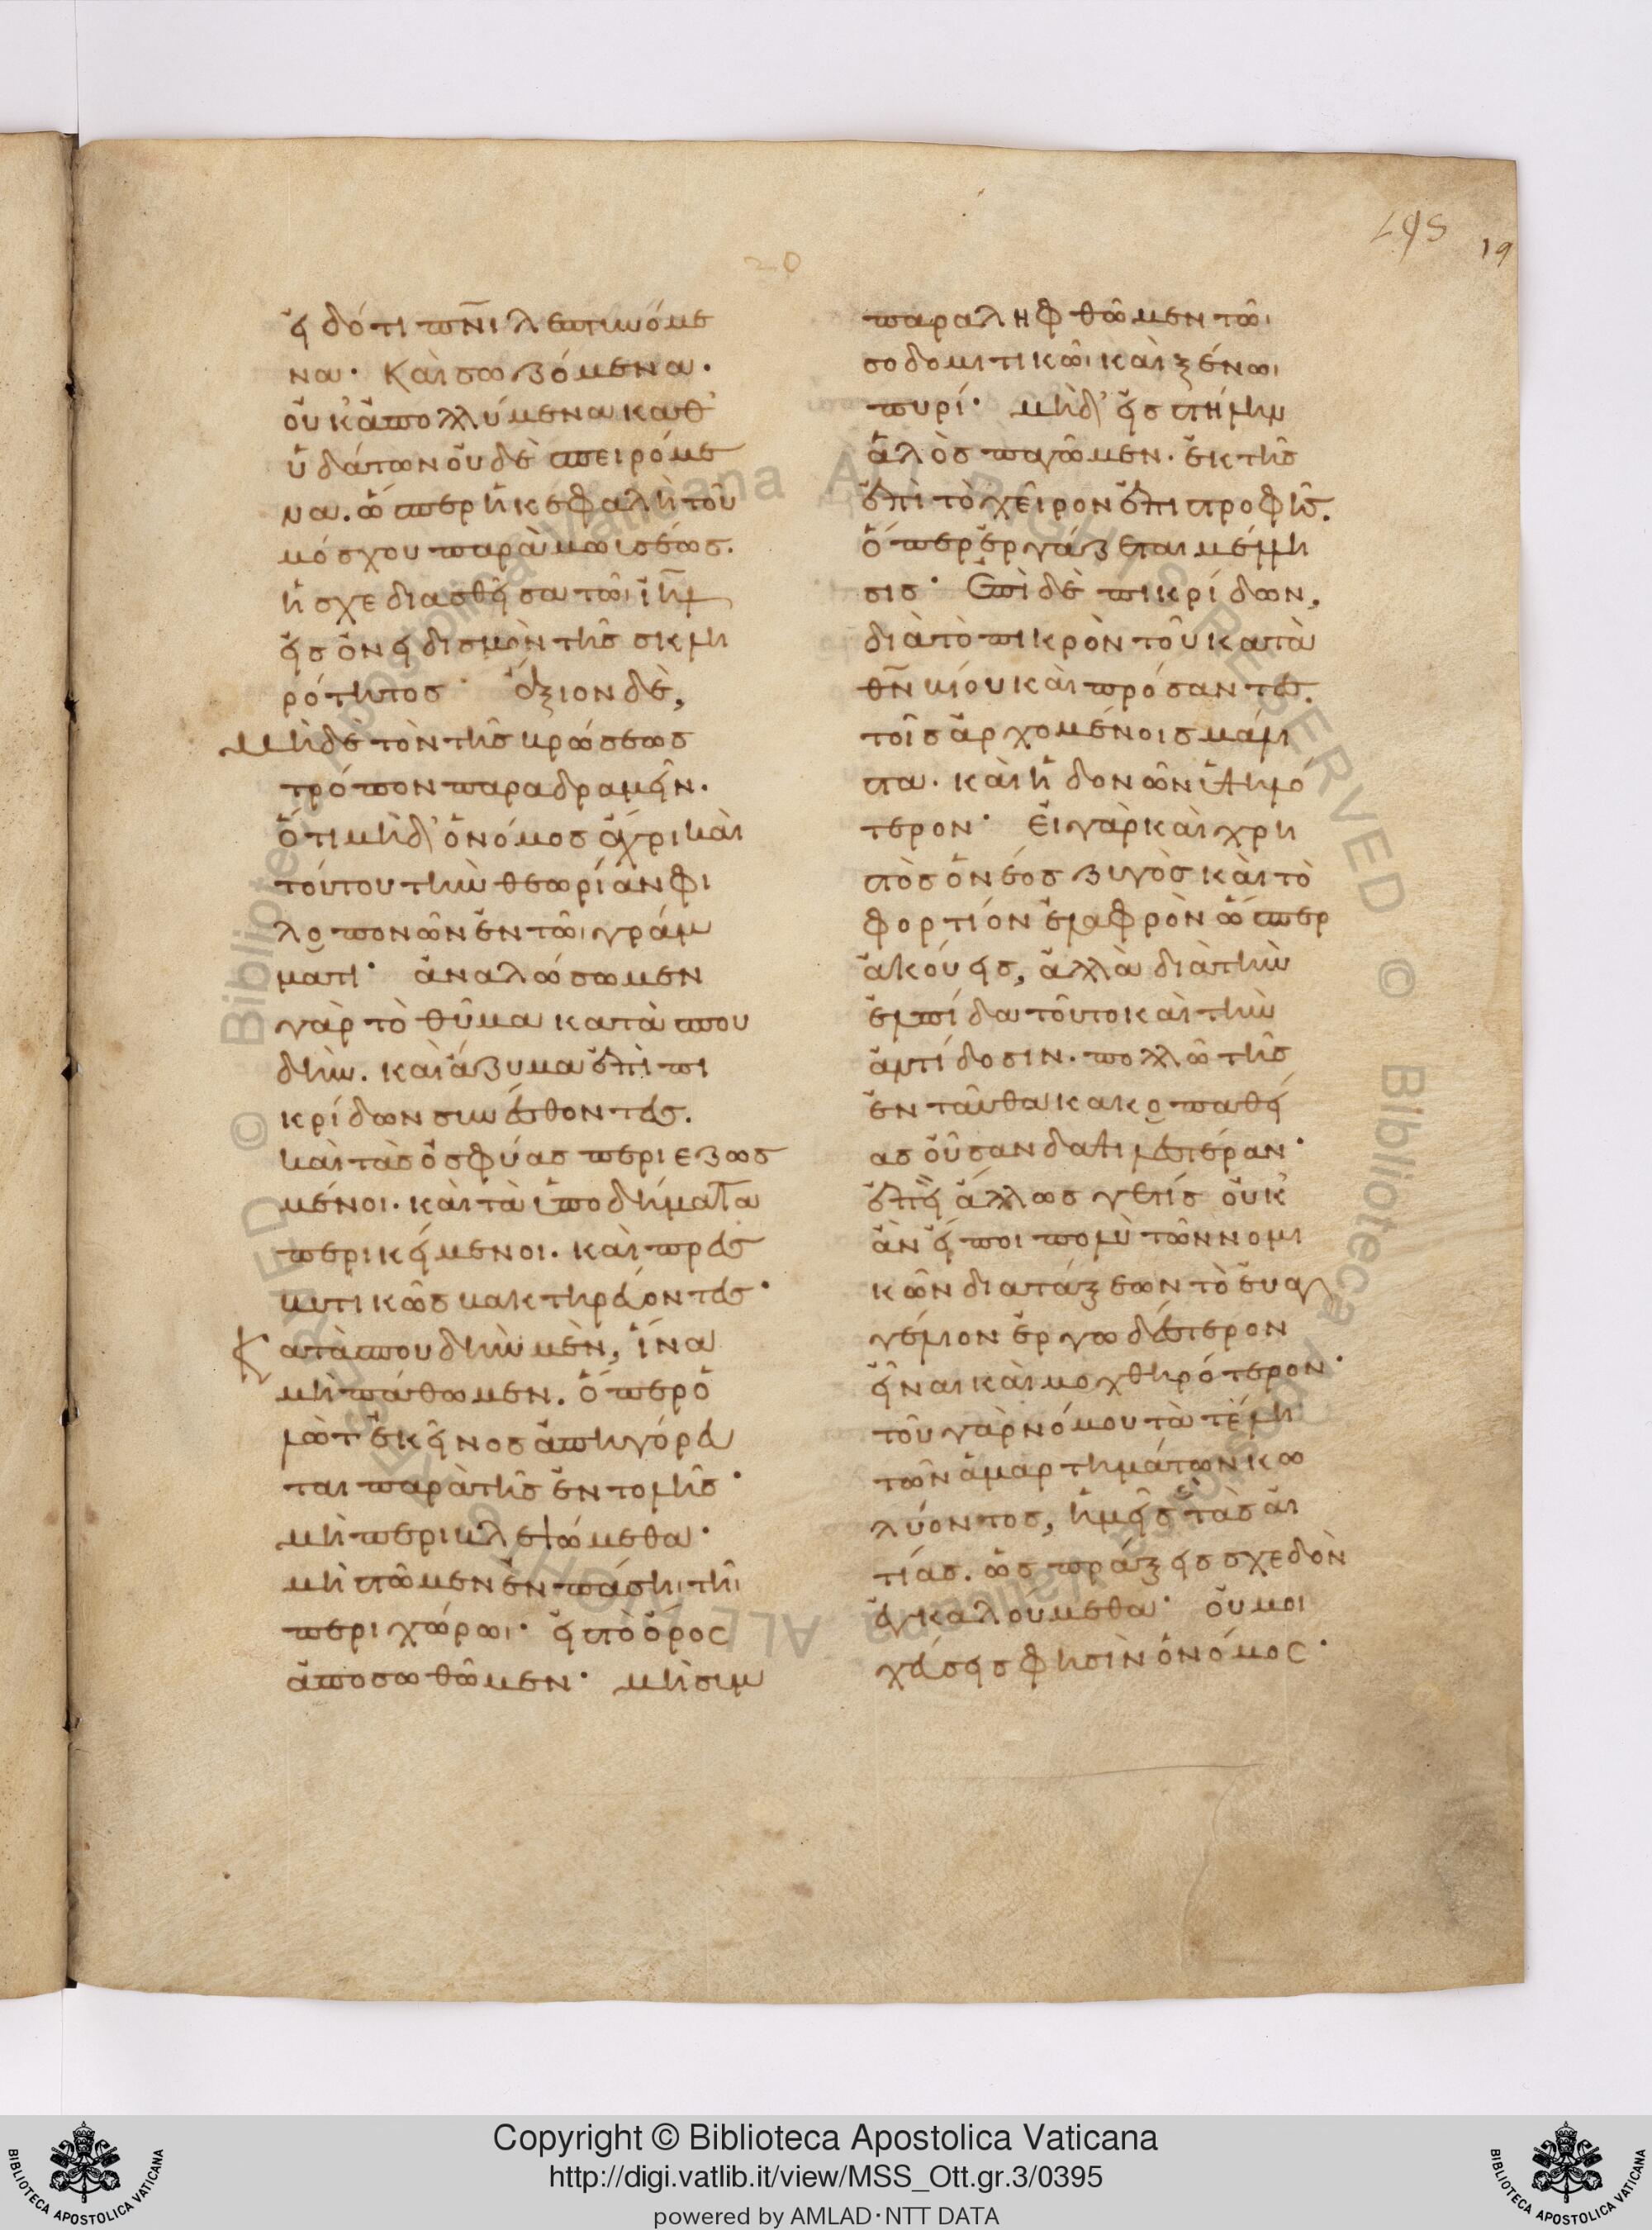 198
19
20
εἰ δότι πνι λεπτυνόμε
να· Καὶ σωζόμενα·
οὐκ ἀπολλύμενα καθ'
ὑδάτων οὐδὲ σπειρόμε
να. ὥσπερ ἡ κεφαλὴ τοῦ
μόσχου παρὰ μωισέως.
ἢ σχεδιασθεῖσα τῶι ἰηλ
εἰς ὀνειδισμὸν τῆς σκλη
ρότητος· ἄξιον δὲ,
μηδὲ τὸν τῆς βρώσεως
τρόπον παραδραμεῖν.
ὅτι μηδ' ὁ νόμος ἄχρι καὶ
τούτου τὴν θεωρίαν φι
λοπονῶν ἐν τῶι γράμ
ματι· ἀναλώσωμεν
γὰρ τὸ θῦμα κατὰ σπου
δήν. καὶ ἄζυμα ἐπὶ πι
κρίδων συνέσθοντες.
καὶ τὰς ὀσφύας περιεζωσ
μένοι. καὶ τὰ ὑποδήματα
περικείμενοι. καὶ πρεσ
βυτικῶς βακτηρεύοντες·
Κατὰ σπουδὴν μὲν, ἵνα
μὴ πάθωμεν. ὅπερ ὁ
λὼτ ἐκεῖνος ἀπηγόρευ
ται παρὰ τῆς ἐντολῆς·
μὴ περιβλεπώμεθα·
μὴ στῶμεν ἐν πάσηι τῆι
περιχώρωι· εἰς τὸ ὄρος
ἀποσωθῶμεν· μὴ συμ
παραληφθῶμεν τῶι
σοδομιτικῶι καὶ ξένωι
πυρί· μηδ' εἰς στήλην
ἁλὸς παγῶμεν. ἐκ τῆς
ἐπὶ τὸ χεῖρον ἐπιστροφῆς.
ὅπερ ἐργάζεται μέλλη
σις· Ἐπὶ δὲ πικρίδων,
διὰ τὸ πικρὸν τοῦ κατὰ
θν βίου καὶ πρόσαντες.
τοῖς ἀρχομένοις μάλι
στα. καὶ ἡδονῶν ὑψηλό
τερον· Εἰ γὰρ καὶ χρη
στὸς ὁ νέος ζυγὸς καὶ τὸ
φορτίον ἐλαφρὸν ὥσπερ
ἀκούεις, ἀλλὰ διὰ τὴν
ἐλπίδα τοῦτο καὶ τὴν
ἀντίδοσιν. πολλῶ τῆς
ἐνταῦθα κακοπαθεί
ας οὖσαν δαψιλεστέραν·
ἐπεὶ ἄλλως γε τίς οὐκ
ἂν εἴποι πολὺ τῶν νομι
κῶν διατάξεων τὸ εὐαγ
γέλιον ἐργωδέστερον
εἶναι καὶ μοχθηρότερον·
τοῦ γὰρ νόμου τὰ τέλη
τῶν ἁμαρτημάτων κω
λύοντος, ἡμεῖς τὰς αἰ
τίας. ὡς πράξεις σχεδὸν
ἐγκαλούμεθα· οὐ μοι
χεύσεις φησὶν ὁ νόμος·
Copyright © Biblioteca Apostolica Vaticana
http://digi.vatlib.it/view/MSS_Ott.gr.3/0395
powered by AMLAD·NTT DATA
BIBLIOTECA APOSTOLICA VATICANA
BIBLIOTECA APOSTOLICA VATICANA